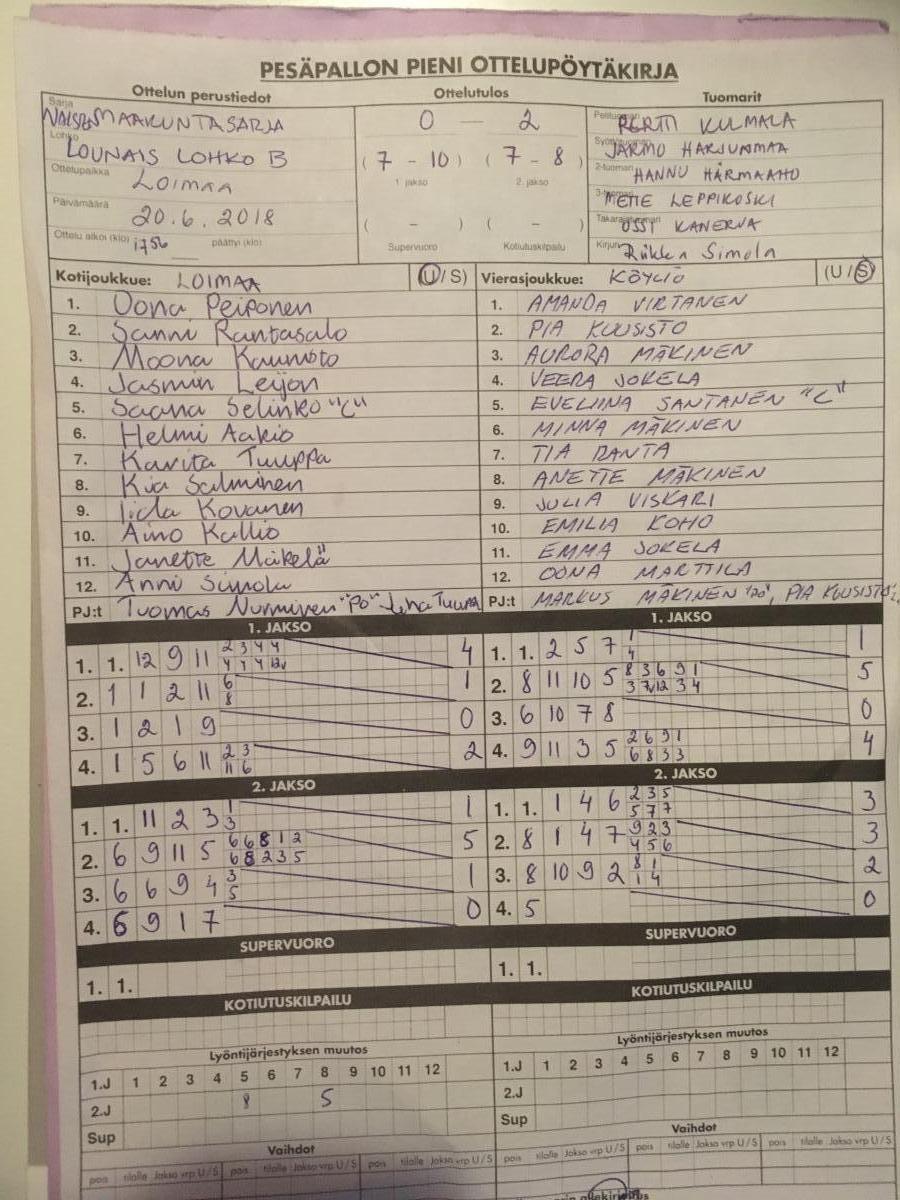 PESÄPALLON PIENI OTTELUPÖYTÄKIRJA
Ottelun perustiedot Ottelutulos Tuomarit
Sarja NAISTEN MAAKUNTASARJA 0 — 2 PERTTI KULMALA
Lohko LOUNAIS LOHKO B (7 - 10) (7 - 8) JARMO HARJUNMAA
1. jakso 2. jakso
Ottelupaikka LOIMAA 2-tuomari HANNU HÄRMAAHO
Päivämäärä 20.6.2018 ( - ) ( - ) METTE LEPPIKOSKI
OSSI KANERVA
Ottelu alkoi (klo) 1756 päättyi (klo) Supervuoro Kotiutuskilpailu Kirjuri Riikka Simola
Kotijoukkue: LOIMAA (U/S) Vierasjoukkue: KÖYLIÖ (U/S)
1. Oona Peiponen 1. AMANDA VIRTANEN
2. Sanni Rantasalo 2. PIA KUUSISTO
3. Moona Kaunisto 3. AURORA MÄKINEN
4. Jasmin Leijon 4. VEERA JOKELA
5. Saana Selinko "C" 5. EVELIINA SANTANEN "C"
6. Helmi Aakio 6. MINNA MÄKINEN
7. Karita Tuuppa 7. TIA RANTA
8. Kia Salminen 8. ANETTE MÄKINEN
9. Iida Kovanen 9. JULIA VISKARI
10. Aino Kallio 10. EMILIA KOHO
11. Janette Mäkelä 11. EMMA JOKELA
12. Anni Simola 12. OONA MARTTILA
PJ:t Tuomas Nurminen "PO" Juha Tuuppa PJ:t MARKUS MÄKINEN "PO", PIA KUUSISTO
1. JAKSO 1. JAKSO
1. 1. 12 9 11 2 3 4 4 4 1. 1. 2 5 7 1 1
4 4 4 12 4
2. 1 1 2 11 6 1 2. 8 11 10 5 8 3 6 9 1 5
8 3 7 12 3 4
3. 1 2 1 9 0 3. 6 10 7 8 0
4. 1 5 6 11 2 3 2 4. 9 11 3 5 2 6 9 1 4
11 6 6 8 3 3
2. JAKSO 2. JAKSO
1. 1. 11 2 3 1 1 1. 1. 1 4 6 2 3 5 3
3 5 7 7
2. 6 9 11 5 6 6 8 1 2 5 2. 8 1 4 7 9 2 3 3
6 8 2 3 5 4 5 6
3. 6 6 9 4 3 1 3. 8 10 9 2 8 1 2
5 1 4
4. 6 9 1 7 0 4. 5 0
SUPERVUORO SUPERVUORO
1. 1. 1. 1.
KOTIUTUSKILPAILU KOTIUTUSKILPAILU
Lyöntijärjestyksen muutos Lyöntijärjestyksen muutos
1.J 1 2 3 4 5 6 7 8 9 10 11 12 1.J 1 2 3 4 5 6 7 8 9 10 11 12
2.J 8 5 2.J
Sup Sup
Vaihdot Vaihdot
pois tilalle Jakso vrp U/S pois tilalle Jakso vrp U/S pois tilalle Jakso vrp U/S pois tilalle Jakso vrp U/S pois tilalle Jakso vrp U/S pois tilalle Jakso vrp U/S